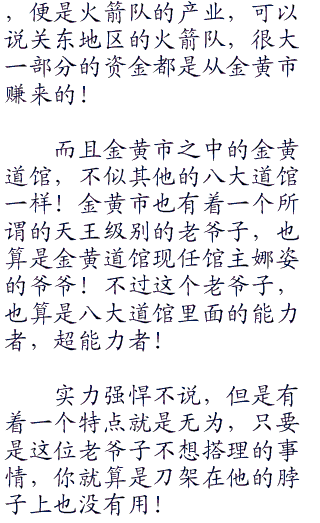 ，便是火箭队的产业，可以
说关东地区的火箭队，很大
一部分的资金都是从金黄市
赚来的！
而且金黄市之中的金黄
道馆，不似其他的八大道馆
一样！金黄市也有着一个所
谓的天王级别的老爷子，也
算是金黄道馆现任馆主娜姿
的爷爷！不过这个老爷子，
也算是八大道馆里面的能力
者，超能力者！
实力强悍不说，但是有
着一个特点就是无为，只要
是这位老爷子不想搭理的事
情，你就算是刀架在他的脖
子上也没有用！